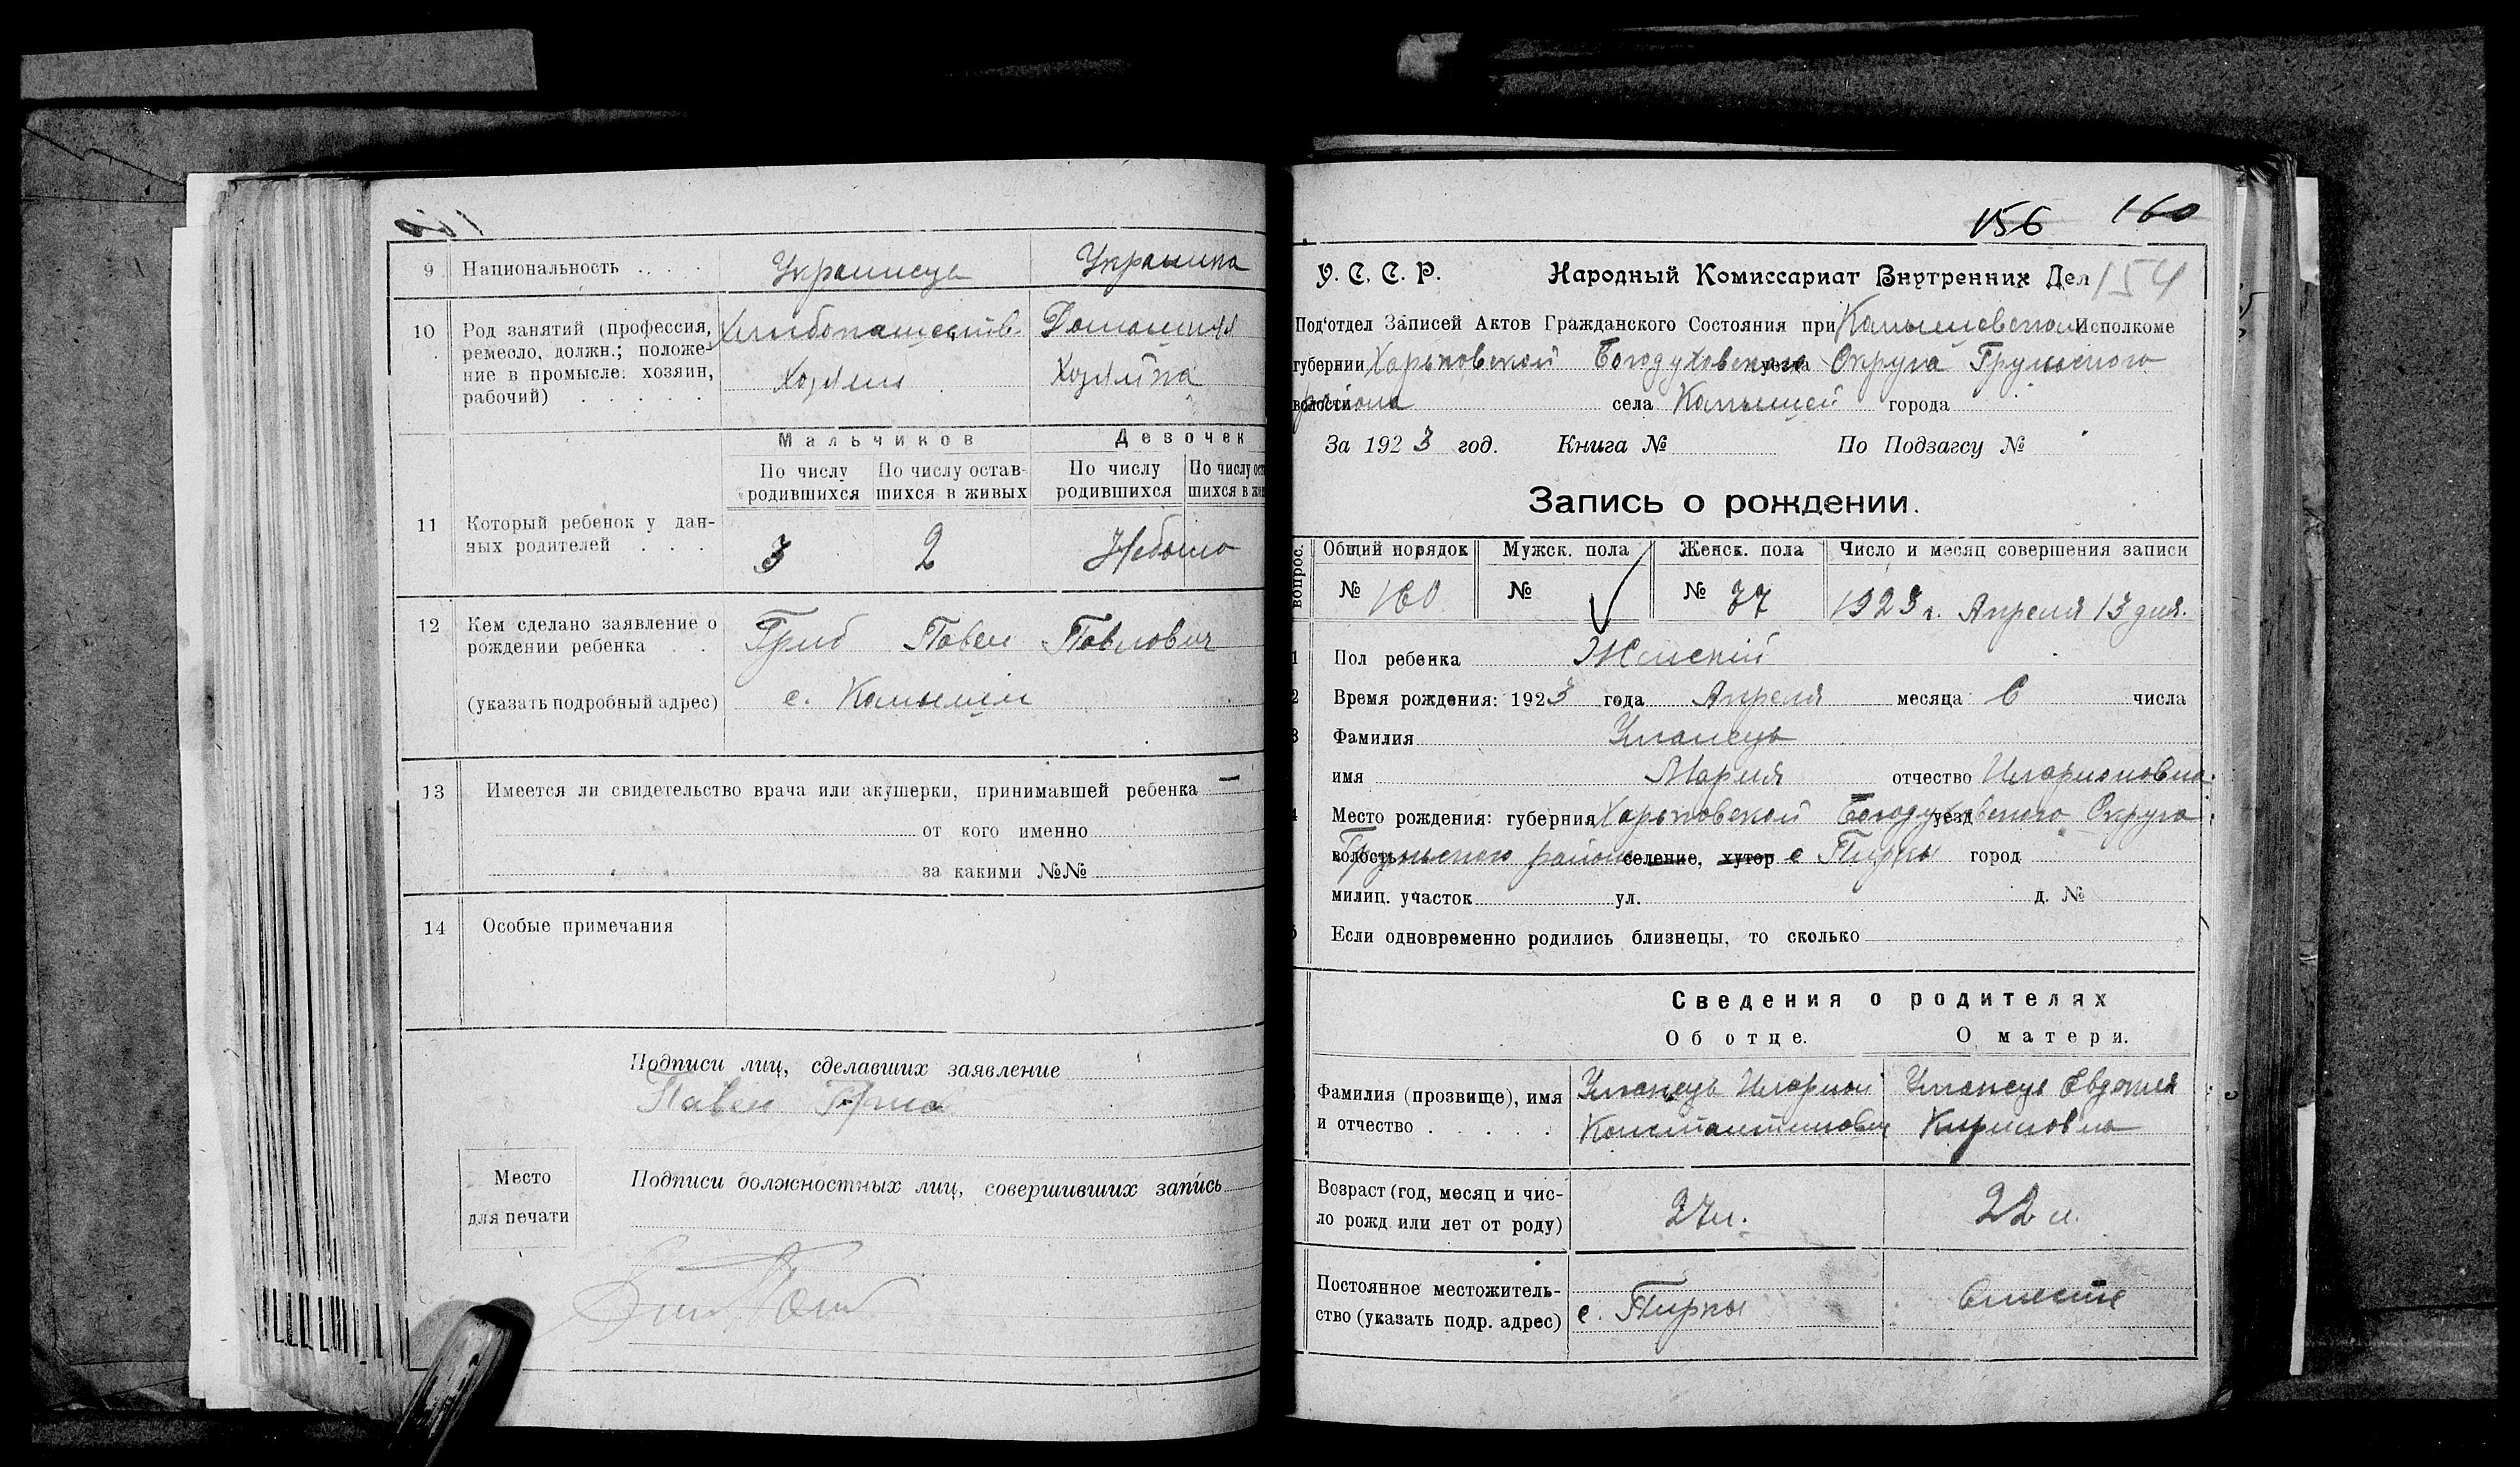 9 Национальность . . . . Украинець Украинка
10 Род занятий (профессия, Хлибопашеств. Домашняя
ремесло, должн.; положе-
ние в промысле: хозяин, Хозяин Хозяйка
рабочий) . . . . . .
Мальчиков Девочек
По числу По числу остав- По числу По числу ост
родившихся шихся в живых родившихся шихся в жи
11 Который ребенок у дан-
ных родителей . . . 3 2 Небыло
12 Кем сделано заявление о Гриб Павел Павлович
рождении ребенка . .
(указать подробный адрес) с. Камыши
13 Имеется ли свидетельство врача или акушерки, принимавшей ребенка —
от кого именно
за какими №№
14 Особые примечания
Подписи лиц, сделавших заявление
Павел Гриб
Место Подписи должностных лиц, совершивших запись
для печати
156 160
У. С. С. Р. Народный Комиссариат Внутренних Дел 154
Под'отдел Записей Актов Гражданского Состояния при Камышевском Исполкоме
губернии Харьковской Богодуховского уезда Округа Грунского
волости района села Камышей города
За 1923 год. Книга № По Подзагсу №
Запись о рождении.
вопрос. Общий порядок Мужск. пола Женск. пола Число и месяц совершения записи
№ 160 № № 77 1923 г. Апреля 13 дня.
1 Пол ребенка Женский
2 Время рождения: 1923 года Апреля месяца 6 числа
3 Фамилия Уманець
имя Мария отчество Иларионовна
4 Место рождения: губерния Харьковской Богодуховского уезд Округа
волость Грунського района селение, хутор с Пирки город
милиц. участок ул. д. №
5 Если одновременно родились близнецы, то сколько
Сведения о родителях
Об отце. О матери.
Фамилия (прозвище), имя Уманець Иларион Уманець Евдокия
и отчество . . . . . Константинович Кириловна
Возраст (год, месяц и чис-
ло рожд или лет от роду) 27 л. 22 л.
Постоянное местожитель-
ство (указать подр. адрес) с. Пирки Вместе